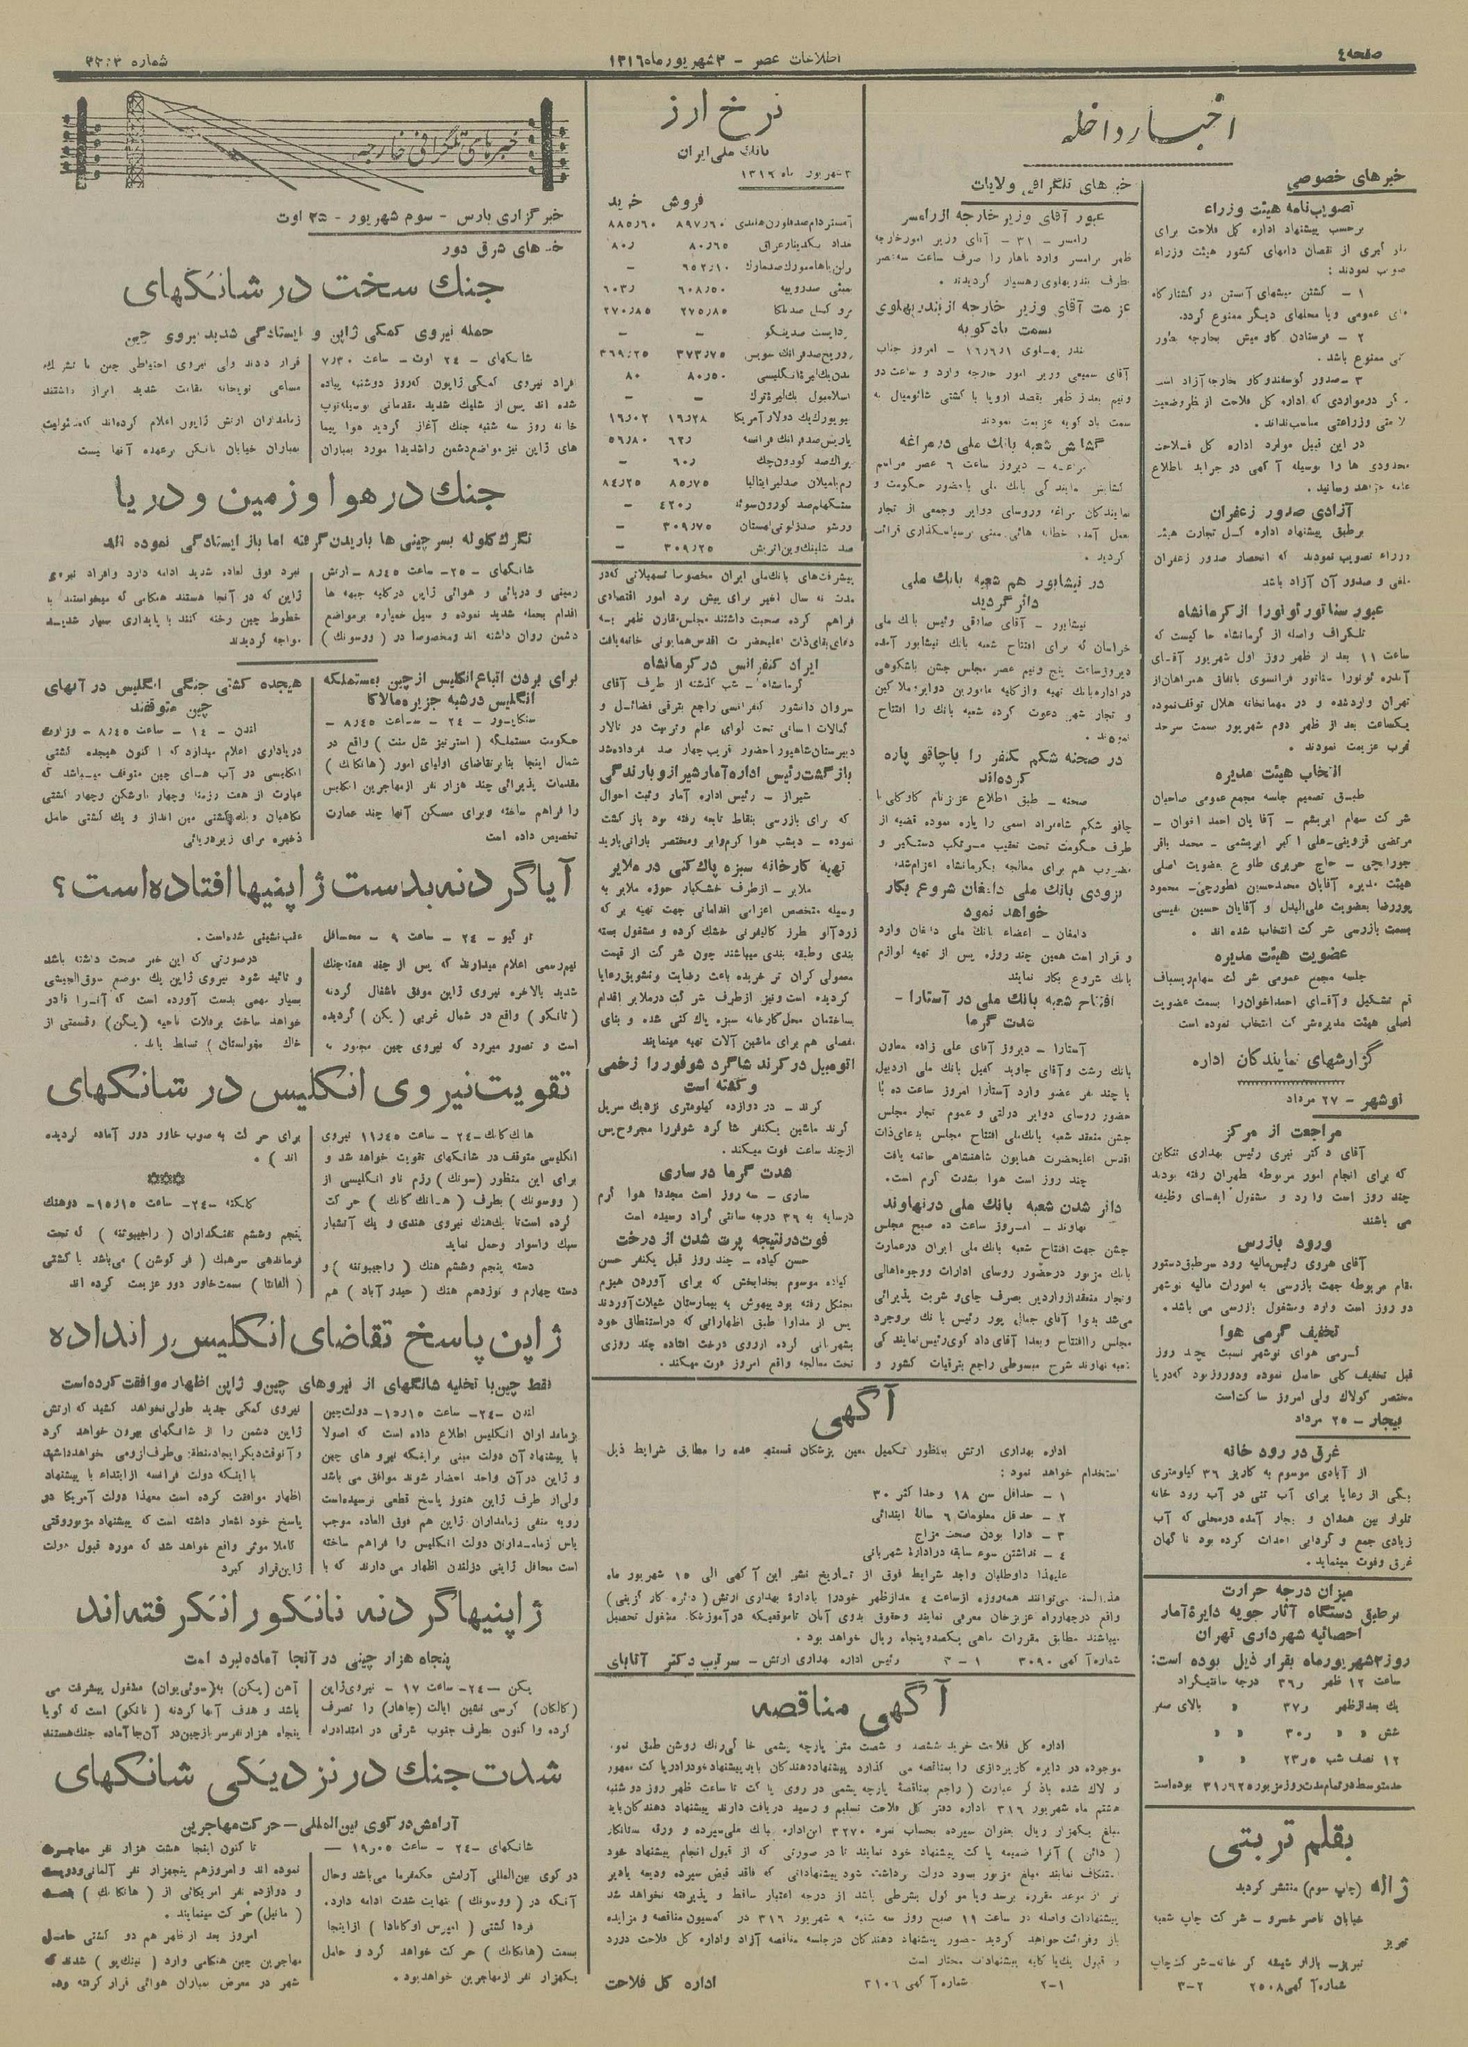 صفحه ٤
اطلاعات عصر - ۳ شهریور ماه ۱۳۱٦
شماره
اخبار داخله
خبرهای خصوصی
تصویب‌نامه هیئت وزراء
برحسب پیشنهاد اداره کل فلاحت برای
گیری از نقصان دامهای کشور هیئت وزراء
نمودند :
۱ - کشتن میشهای آبستن در کشتارگاه
های عمومی ویا محلهای دیگر ممنوع گردد.
۲ - فرستادن گاومیش بخارجه بطور
کلی ممنوع باشد .
۳ - صدور گوسفند و گاو خارجه آزاد است
مگر درمواردی که اداره کل فلاحت از نظر وضعیت
زراعتی مناسب نداند .
در این قبیل موارد اداره کل فلاحت
محدودی ها را بوسیله آگهی در جراید باطلاع
عامه خواهد رسانید .
آزادی صدور زعفران
برطبق پیشنهاد اداره کل تجارت هیئت
وزراء تصویب نمودند که انحصار صدور زعفران
ملغی و صدور آن آزاد باشد
عبور سناتور ئونورا از کرمانشاه
تلگراف واصله از کرمانشاه حاکیست که
ساعت ۱۱ بعد از ظهر روز اول شهریور آقای
تهران وارد شده و در مهمانخانه هلال توقف نموده
یکساعت بعد از ظهر دوم شهریور سمت سرحد
غرب عزیمت نمودند .
انتخاب هیئت مدیره
طبق تصمیم جلسه مجمع عمومی صاحبان
شرکت سهام ابریشم - آقایان احمد اخوان -
مرتضی قزوینی - علی اکبر ابریشمی - محمد باقر
جورابچی - حاج حریری طلوع بعضویت اصلی
هیئت مدیره آقایان محمدحسین فطورچی - محمود
پوررضا بعضویت علی‌البدل و آقایان حسین نفیسی
بسمت بازرسی شرکت انتخاب شده اند .
عضویت هیئت مدیره
جلسه مجمع عمومی شرکت سهام ریسباف
قم تشکیل و آقای احمد اخوان را بسمت عضویت
اصلی هیئت مدیره شرکت انتخاب نموده است
گزارشهای نمایندگان اداره
نوشهر - ۲۷ مرداد
مراجعت از مرکز
آقای دکتر نیری رئیس بهداری تنکابن
که برای انجام امور مربوطه طهران رفته بودند
چند روز است وارد و مشغول ایفای وظیفه
می باشند
ورود بازرس
آقای هروی رئیس مالیه رود سر طبق دستور
مقام مربوطه جهت بازرسی به امورات مالیه نوشهر
دو روز است وارد و مشغول بازرسی می باشد .
تخفیف گرمی هوا
گرمی هوای نوشهر نسبت بچند روز
قبل تخفیف کلی حاصل نموده و دو روز بود که دریا
مختصر کولاک ولی امروز ساکت است
بیجار - ۲۵ مرداد
غرق در رود خانه
از آبادی موسوم به کاریز ۳٦ کیلومتری
یکی از رعایا برای آب تنی در آب رود خانه
تلوار بین همدان و بیجار آمده در محلی که آب
زیادی جمع و گردابی احداث کرده بود ناگهان
غرق و فوت مینماید .
میزان درجه حرارت
برطبق دستگاه آثار جویه دایره آمار
احصائیه شهرداری تهران
روز ۳ شهریور ماه بقرار ذیل بوده است:
ساعت ۱۲ ظهر ر۳٦ درجه سانتیگراد
یک بعدازظهر ر۳۷ » بالای صفر
شش » » ر۳۰ » »
۱۲ نصف شب ۲۳٫۵ » »
حد متوسط در تمام مدت روز مزبور ۳۱٫٦۲۵ بوده است
بقلم تربتی
ژاله (چاپ سوم) منتشر گردید
خیابان ناصر خسرو - شرکت چاپ شعبه
تبریز
تبریز - بازار شیشه گر خانه - شرکت چاپ
شماره آگهی ۲۵۰۸ ۲-۳
خبرهای تلگرافی ولایات
عبور آقای وزیر خارجه از رامسر
رامسر - ۳۱ - آقای وزیر امور خارجه
ظهر برامسر وارد ناهار را صرف ساعت سه عصر
بطرف بندر پهلوی رهسپار گردیدند .
عزیمت آقای وزیر خارجه از بندر پهلوی
بسمت بادکوبه
بندر پهلوی ۱٦٫٦٫۱ - امروز جناب
آقای سمیعی وزیر امور خارجه وارد و ساعت دو
و نیم بعد از ظهر بقصد اروپا با کشتی شائومیان به
سمت بادکوبه عزیمت نمودند .
گشایش شعبه بانک ملی در مراغه
مراغه - دیروز ساعت ٦ عصر مراسم
گشایش نمایندگی بانک ملی با حضور حکومت و
نمایندگان مراغه و روسای دوایر و جمعی از تجار
بعمل آمد . خطابه هائی مبنی بر سپاسگذاری قرائت
گردید .
در نیشابور هم شعبه بانک ملی
دائر گردید
نیشابور - آقای صادقی رئیس بانک ملی
خراسان که برای افتتاح شعبه بانک نیشابور آمده
دیروز ساعت پنج و نیم عصر مجلس جشن باشکوهی
در اداره بانک تهیه و از کلیه مامورین دوایر و ملاکین
و تجار شهر دعوت کرده شعبه بانک را افتتاح
نمودند .
در صحنه شکم یکنفر را با چاقو پاره
کرده‌اند
صحنه - طبق اطلاع عزیز نام کاوکلی با
چاقو شکم شاه‌مراد اسمی را پاره نموده قضیه از
طرف حکومت تحت تعقیب مرتکب دستگیر و
مضروب هم برای معالجه بکرمانشاه اعزام شد .
بزودی بانک ملی دامغان شروع بکار
خواهد نمود
دامغان - اعضاء بانک ملی دامغان وارد
و قرار است همین چند روزه پس از تهیه لوازم
بانک شروع بکار نمایند
افتتاح شعبه بانک ملی در آستارا -
شدت گرما
آستارا - دیروز آقای علی زاده معاون
بانک رشت و آقای جاوید کفیل بانک ملی اردبیل
با چند نفر عضو وارد آستارا امروز ساعت ده با
حضور روسای دوایر دولتی و عموم تجار مجلس
جشن منعقد شعبه بانک ملی افتتاح مجلس بدعای ذات
اقدس اعلیحضرت همایون شاهنشاهی خاتمه یافت
چند روز است هوا بشدت گرم است .
دائر شدن شعبه بانک ملی در نهاوند
نهاوند - امروز ساعت ده صبح مجلس
جشن جهت افتتاح شعبه بانک ملی ایران در عمارت
بانک مزبور در حضور روسای ادارات و وجوه اهالی
و تجار منعقد از واردین بصرف چای و شربت پذیرائی
می شد بدوا آقای جمال پور رئیس بانک بروجرد
مجلس را افتتاح و بعدا آقای داد کوی رئیس نمایندگی
شعبه نهاوند شرح مبسوطی راجع بترقیات کشور و
نرخ ارز
بانک ملی ایران
۳ شهریور ماه ۱۳۱٦
فروش خرید
آمستردام صد فلورن هلندی ۸۹۷٫٦۰ ۸۸۵٫٦۰
بغداد یکدینار عراق ۸۰٫٦۵ ر۸۰
برلن باهامبورک صد مارک ٦۵۲٫۱۰ -
بمبئی صد روپیه ٦۰۸٫۵۰ ر٦۰۳
بروکسل صد بلکا ۲۷۵٫۸۵ ۲۷۰٫۸۵
بوداپست صد پنگو - -
زوریخ صد فرانک سویس ۳۷۳٫۷۵ ۳٦۹٫۲۵
لندن یک لیره انگلیسی ۸۰٫۵۰ ۸۰
اسلامبول یک لیره ترک - -
نیویورک یک دولار آمریکا ۱٦٫۲۸ ۱٦٫۰۲
پاریس صد فرانک فرانسه ر٦۲ ۵٦٫۸۰
پراگ صد کورون چک ر٦۰ -
رم یا میلان صد لیر ایتالیا ۸۵٫۷۵ ۸٤٫۲۵
ستکهلم صد کورون سوئد ر٤۲۰ -
ورشو صد زلوتی لهستان ۳۰۹٫۷۵ -
صد شلینک وین اتریش ۳۰۹٫۲۵ -
پیشرفت‌های بانک ملی ایران مخصوصا تسهیلاتی که در
مدت نه سال اخیر برای پیش برد امور اقتصادی
فراهم کرده صحبت داشتند مجلس مقارن ظهر به
دعای بقای ذات اعلیحضرت اقدس همایونی خاتمه یافت
ایراد کنفرانس در کرمانشاه
کرمانشاه - شب گذشته از طرف آقای
سروان دانشور کنفرانسی راجع بترقی فضائل و
کمالات انسانی تحت لوای علم و تربیت در تالار
دبیرستان شاهپور با حضور قریب چهار صد نفر داده شد
بازگشت رئیس اداره آمار شیراز و بارندگی
شیراز - رئیس اداره آمار و ثبت احوال
که برای بازرسی بنقاط تابعه رفته بود بازگشت
نموده - دیشب هوا گرم و ابر و مختصر بارانی بارید
تهیه کارخانه سبزه پاک کنی در ملایر
ملایر - از طرف خشکبار حوزه ملایر به
وسیله متخصص اعزامی اقداماتی جهت تهیه برگه
زردآلو طرز کالیفرنی خشک کرده و مشغول بسته
بندی وطبقه بندی میباشند چون شرکت از قیمت
معمولی گران تر خریده باعث رضایت و تشویق رعایا
گردیده است و نیز از طرف شرکت در ملایر اقدام
بساختمان محل کارخانه سبزه پاک کنی شده و بنای
مفصلی هم برای ماشین آلات تهیه مینمایند
اتومبیل در کرند شاگرد شوفور را زخمی
و کشته است
کرند - در دوازده کیلومتری نزدیک سرپل
کرند ماشین یکنفر شاگرد شوفر را مجروح پس
از چند ساعت فوت میکند .
شدت گرما در ساری
ساری - سه روز است مجددا هوا گرم
در سایه به ۳٦ درجه سانتی گراد رسیده است
فوت در نتیجه پرت شدن از درخت
حسن کیاده - چند روز قبل یکنفر حسن
کیاده موسوم بخدابخش که برای آوردن هیزم
بجنگل رفته بود بیهوش به بیمارستان شیلات آوردند
پس از مداوا طبق اظهاراتی که در استنطاقی خود
بشهربانی کرده از روی درخت افتاده چند روزی
تحت معالجه واقع امروز فوت میکند .
آگهی
اداره بهداری ارتش بمنظور تکمیل معین پزشکان قسمتها عده را مطابق شرایط ذیل
استخدام خواهد نمود :
۱ - حداقل سن ۱۸ وحداکثر ۳۰
۲ - حداقل معلومات ٦ ساله ابتدائی
۳ - دارا بودن صحت مزاج
٤ - نداشتن سوء سابقه در اداره شهربانی
علیهذا داوطلبان واجد شرایط فوق از تاریخ نشر این آگهی الی ۱۵ شهریور ماه
هذه‌السنه می‌توانند همه‌روزه از ساعت ٤ بعدازظهر خود را باداره بهداری ارتش (دائره کارگزینی)
واقع در چهارراه عزیزخان معرفی نمایند و حقوق بدوی آنان تا موقعیکه در آموزشگاه مشغول تحصیل
میباشند مطابق مقررات ماهی یکصد و پنجاه ریال خواهد بود .
شماره آگهی ۳۰۹۰ ۱-۳ رئیس اداره بهداری ارتش - سرتیپ دکتر آتابای
آگهی مناقصه
اداره کل فلاحت خرید ششصد و شصت متر پارچه پشمی خاکی رنگ روشن طبق نمونه
موجوده در دایره کارپردازی را بمناقصه می گذارد پیشنهاد دهندگان باید پیشنهاد خود را در پاکت ممهور
و لاک شده باذکر عبارت (راجع بمناقصه پارچه پشمی در روی پاکت تا ساعت ظهر روز دوشنبه
هشتم ماه شهریور ۳۱٦ اداره دفتر کل فلاحت تسلیم و رسید دریافت دارند پیشنهاد دهندگان باید
مبلغ یکهزار ریال بعنوان سپرده بحساب نمره ۳۲۷۰ این اداره بانک ملی سپرده و ورقه ستانکار
(دائن) آنرا ضمیمه پاکت پیشنهاد خود نمایند تا در صورتی که از قبول انجام پیشنهاد خود
استنکاف نمایند مبلغ مزبور بسود دولت برداشت شود پیشنهاداتی که فاقد قبض سپرده ودیعه یا دیر
تر از موعد مقرره برسد ویا موکول بشرطی باشد از درجه اعتبار ساقط و پذیرفته نخواهد شد
پیشنهادات واصله در ساعت ۱۱ صبح روز سه شنبه ۹ شهریور ۳۱٦ در کمسیون مناقصه و مزایده
باز و قرائت خواهد گردید حضور پیشنهاد دهندگان در جلسه مناقصه آزاد و اداره کل فلاحت در رد
و قبول یک یا کلیه پیشنهادات مختار است
۱-۲ شماره آگهی ۳۱۰٦ اداره کل فلاحت
خبرهای تلگرافی خارجه
خبرگزاری پارس - سوم شهریور - ۲۵ اوت
خبرهای شرق دور
جنك سخت در شانگهای
حمله نیروی کمکی ژاپن و ایستادگی شدید نیروی چین
شانگهای - ۲٤ اوت - ساعت ۷٫۳۰
افراد نیروی کمکی ژاپون که روز دوشنبه پیاده
شده اند پس از شلیك شدید مقدماتی بوسیله توپ
خانه روز سه شنبه جنك آغاز گردید هوا پیما
های ژاپن نیز مواضع دشمن را شدیدا مورد بمباران
قرار دادند ولی نیروی احتیاطی چین با تشریك
مساعی توپخانه مقاومت شدید ابراز داشتند
زمامداران ارتش ژاپون اعلام کرده‌اند که مسئولیت
بمباران خیابان نانکن برعهده آنها نیست
جنك در هوا و زمین و دریا
تگرك گلوله بسر چینی ها باریدن گرفته اما باز ایستادگی نموده اند
شانگهای - ۲۵ - ساعت ۸٫٤۵ - ارتش
زمینی و دریائی و هوائی ژاپن در کلیه جبهه ها
اقدام بحمله شدید نموده و سیل خمپاره بر مواضع
دشمن روان داشته اند و مخصوصا در (ووسونك)
نبرد فوق العاده شدید ادامه دارد و افراد نیروی
ژاپن که در آنجا هستند هنگامی که میخواستند به
خطوط چین رخنه کنند با پایداری بسیار شدید
مواجه گردیدند
برای بردن اتباع انگلیس از چین بمستملکه
انگلیس در شبه جزیره مالاکا
سنگاپور - ۲٤ - ساعت ۸٫٤۵ -
حکومت مستملکه (استرتیز ستل منت) واقع در
شمال اینجا بنا بر تقاضای اولیای امور (هانکانك)
مقدمات پذیرائی چند هزار نفر از مهاجرین انگلیس
را فراهم ساخته و برای مسکن آنها چند عمارت
تخصیص داده است
هیجده کشتی جنگی انگلیس در آبهای
چین متوقفند
لندن - ۲٤ - ساعت ۸٫٤۵ - وزارت
دریاداری اعلام میدارد که اکنون هیجده کشتی
انگلیسی در آب های چین متوقف میباشد که
عبارت از هفت رزمناو چهار ناوشکن و چهار کشتی
نگاهبان و یک کشتی مین انداز و یك کشتی حامل
ذخیره برای زیردریائی
آیا گردنه بدست ژاپنیها افتاده است ؟
توکیو - ۲٤ - ساعت ۹ - محافل
نیم رسمی اعلام میدارند که پس از چند هفته جنك
شدید بالاخره نیروی ژاپن موفق باشغال گردنه
(نانکو) واقع در شمال غربی (پکن) گردیده
است و تصور میرود که نیروی چین مجبور به
عقب نشینی شده است .
در صورتی که این خبر صحت داشته باشد
و تائید شود نیروی ژاپن یك موضع سوق‌الجیشی
بسیار مهمی بدست آورده است که آنرا قادر
خواهد ساخت بر فلات ناحیه (پکن) و قسمتی از
خاك مغولستان تسلط یابد .
تقویت نیروی انگلیس در شانگهای
هانگ‌کانك - ۲٤ - ساعت ۱۱٫٤۵ نیروی
انگلیسی متوقف در شانگهای تقویت خواهد شد و
برای این منظور (سونك) رزم ناو انگلیسی از
(ووسونك) بطرف (هانك‌کانك) حرکت
کرده است تا یك هنك نیروی هندی و یك آتشبار
سبك را سوار و حمل نماید
دسته پنجم و ششم هنك (راجپوتنه) و
دسته چهارم و نوزدهم هنك (حیدر آباد) هم
برای حرکت به صوب خاور دور آماده گردیده
اند ) .
کلکته - ۲٤ - ساعت ۱۵٫۱۵ - دو هنك
پنجم و ششم تفنگداران (راجپوتنه) که تحت
فرماندهی سرهنك (فرکوشن) می‌باشد با کشتی
(الفانتا) سمت خاور دور عزیمت کرده اند
ژاپن پاسخ تقاضای انگلیس را نداده
فقط چین با تخلیه شانگهای از نیروهای چین و ژاپن اظهار موافقت کرده است
لندن - ۲٤ - ساعت ۱۵٫۱۵ - دولت چین
بزمامداران انگلیس اطلاع داده است که اصولا
با پیشنهاد آن دولت مبنی بر اینکه نیرو های چین
و ژاپن در آن واحد احضار شوند موافق می باشد
ولی از طرف ژاپن هنوز پاسخ قطعی نرسیده است
رویه منفی زمامداران ژاپن هم فوق العاده موجب
یاس زمامداران دولت انگلیس را فراهم ساخته
است محافل ژاپنی در لندن اظهار می دارند که با
نیروی کمکی جدید طولی نخواهد کشید که ارتش
ژاپن دشمن را از شانگهای بیرون خواهد کرد
و آنوقت دیگر ایجاد منطقه بی‌طرف لزومی نخواهد داشت
با اینکه دولت فرانسه از ابتداء با پیشنهاد
اظهار موافقت کرده است معهذا دولت آمریکا در
پاسخ خود اشعار داشته است که پیشنهاد مزبور وقتی
کاملا موثر واقع خواهد شد که مورد قبول دولت
ژاپن قرار گیرد
ژاپنیها گردنه نانکور را نگرفته‌اند
پنجاه هزار چینی در آنجا آماده نبرد است
پکن - ۲٤ - ساعت ۱۷ - نیروی ژاپن
(کالگان) کرسی نشین ایالت (چاهار) را تصرف
کرده و اکنون بطرف جنوب شرقی در امتداد راه
آهن (پکن) به (سوئی‌یوان) مشغول پیشرفت می
باشد و هدف آنها گردنه (نانکو) است که گویا
پنجاه هزار نفر سرباز چین در آنجا آماده جنك هستند
شدت جنك در نزدیکی شانگهای
آرامش در کوی بین‌المللی - حرکت مهاجرین
شانگهای - ۲٤ - ساعت ۱۹٫۰۵ -
در کوی بین‌المللی آرامش حکمفرما می‌باشد و حال
آنکه در (ووسونك) نهایت شدت ادامه دارد .
فردا کشتی (امپرس اوکانادا) از اینجا
بسمت (هانکانك) حرکت خواهد کرد و حامل
یکهزار نفر از مهاجرین خواهد بود .
تاکنون اینجا هشت هزار نفر مهاجرت
نموده اند و امروز هم پنجهزار نفر آلمانی و دویست
و دوازده نفر امریکائی از (هانکانك) بسمت
(مانیل) حرکت مینمایند .
امروز بعد از ظهر هم دو کشتی حامل
مهاجرین چین هنگامی وارد (نینکپو) شدند که
شهر در معرض بمباران هوائی قرار گرفته بود